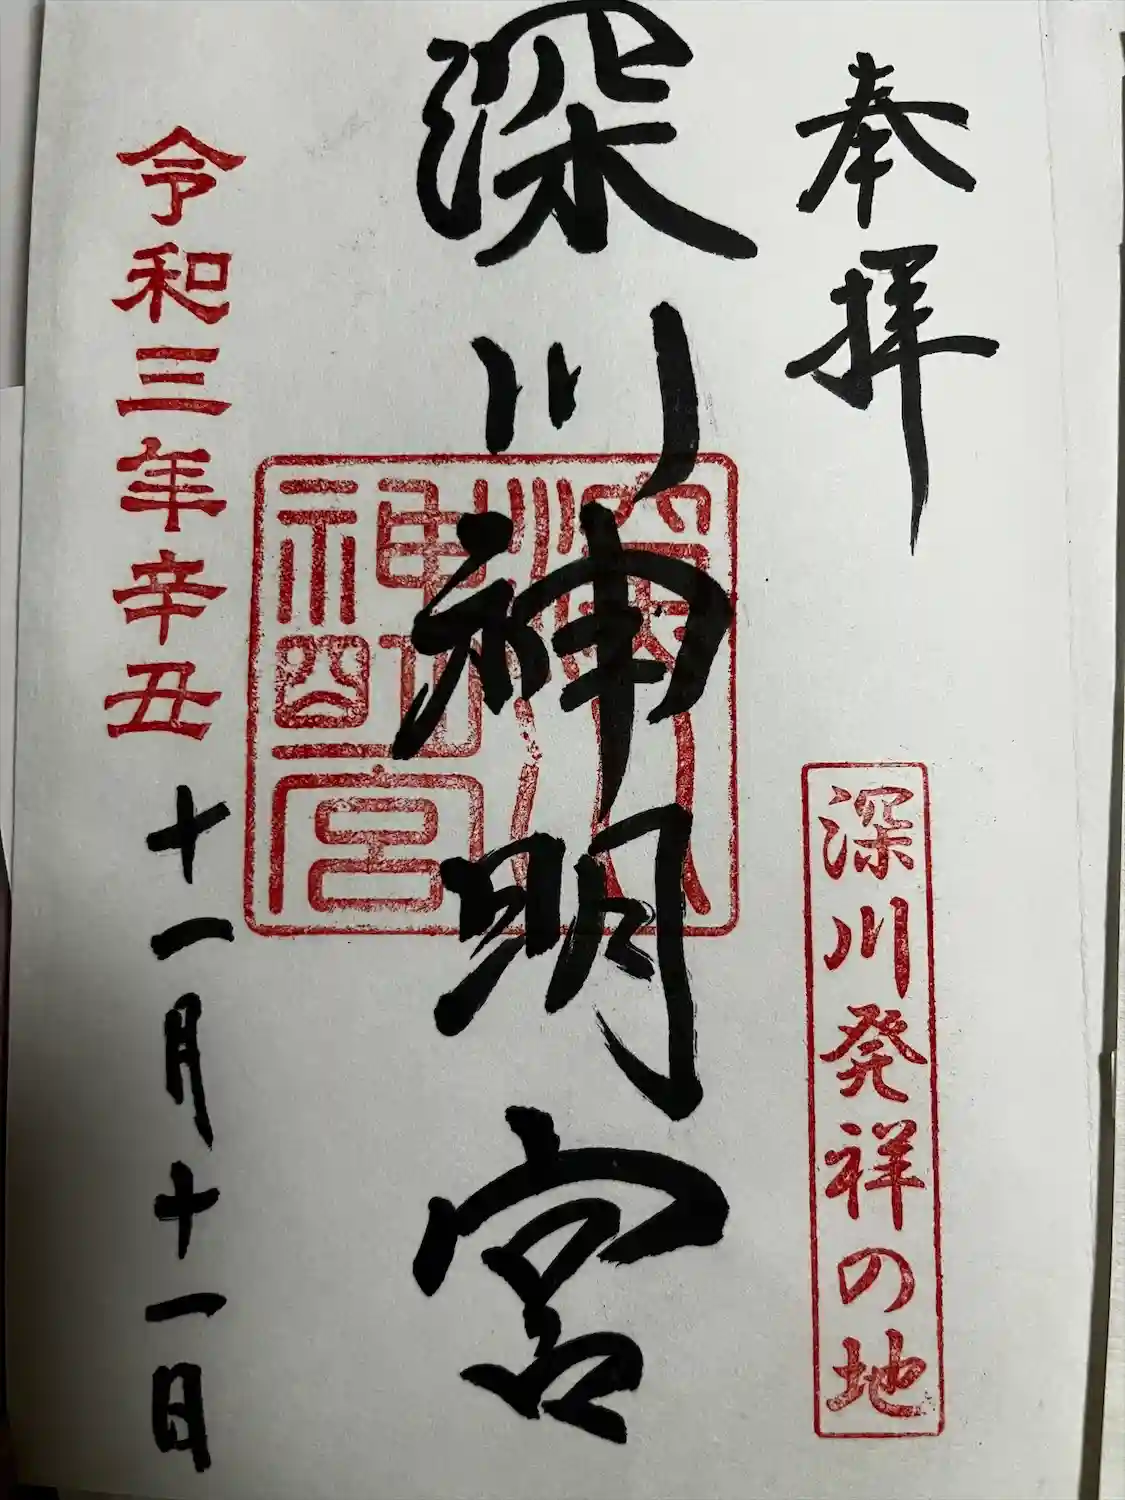 奉拝
深川発祥の地
深川神明宮
深川神明宮
令和三年辛丑十一月十一日